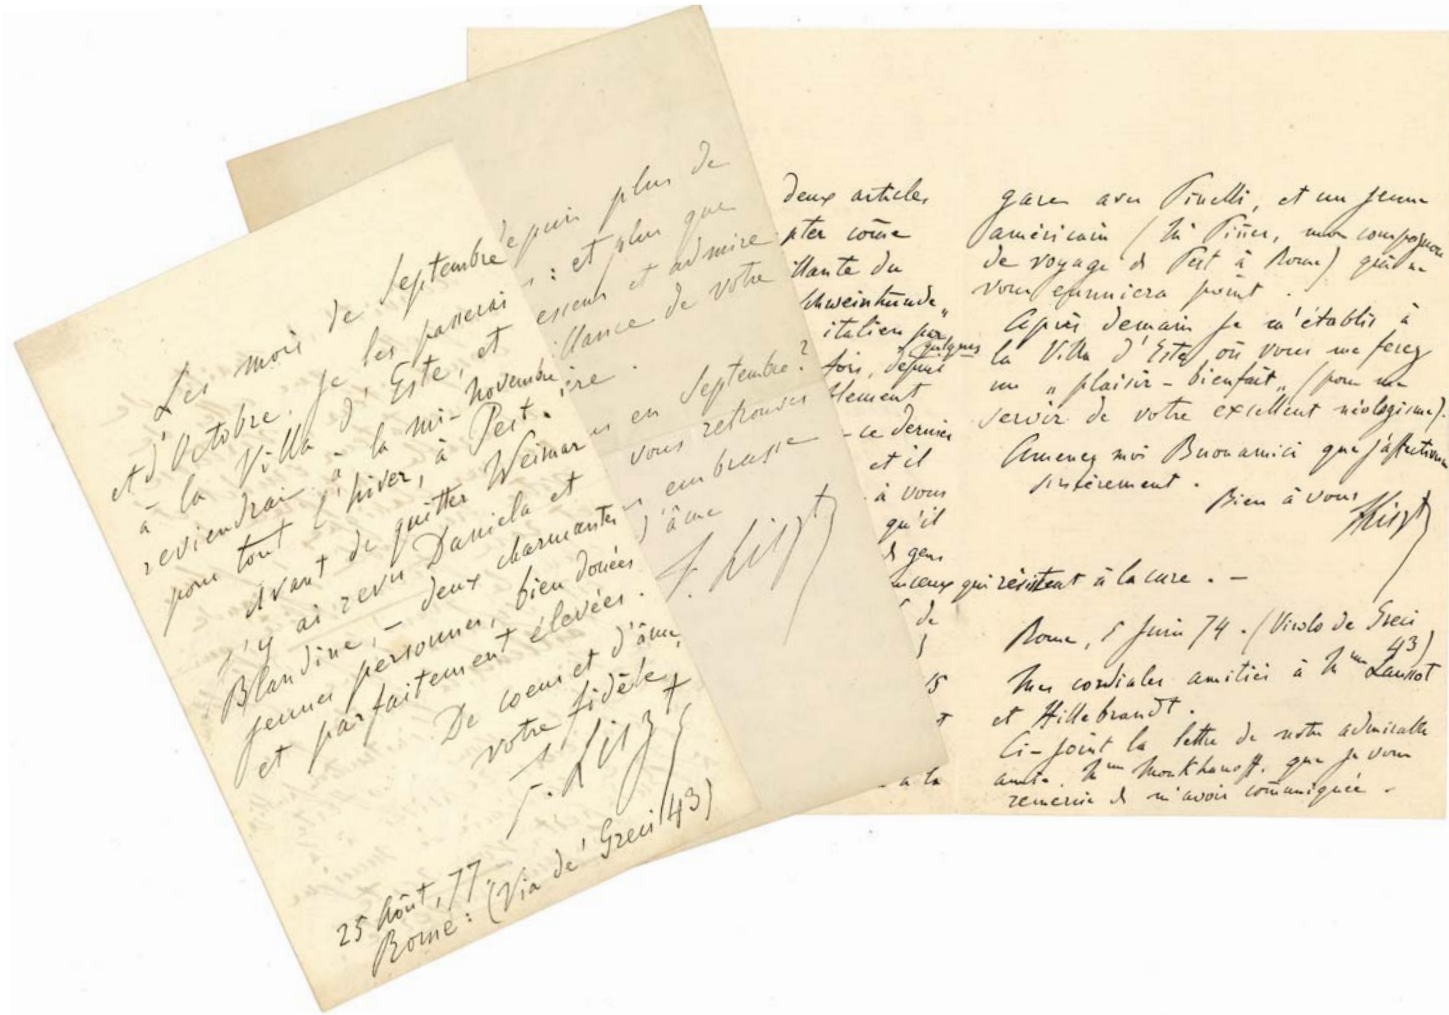 Les mois de Septembre
et d'Octobre, je les passerai
à la Villa d'Este, et
reviendrai à la mi-Novembre
pour tout l'hiver, à Pest.
Avant de quitter Weimar
j'y ai revu Daniela et
Blandine, – deux charmantes
jeunes personnes, bien douées
et parfaitement élevées.
De coeur et d'âme,
votre fidèle,
F. Liszt
25 Août, 77.
Rome: (Via de' Greci 43)
epuis plus de
: et plus que
esseur et admire
illance de votre
ère.
en Septembre?
vous retrouver
embrasse
d'âme
F. Liszt
deux articles
pter come
illante du
Schweinhunde„
italien par
quelques
fois, depuis
llement
- ce dernier
et il
à vous
qu'il
gens
ceux qui résistent à la cure. –
de
15
t
a la
gare avec Pinelli, et un jeune
américain (Mr Pinner, mon compagnon
de voyage de Pest à Rome) qui ne
vous ennuiera point.
Après demain je m'établis à
la Villa d'Este, où vous me ferez
un „plaisir-bienfait„ (pour me
servir de votre excellent néologisme).
Amenez moi Buonamici que j'affectionne
sincèrement.
Bien à vous
FLiszt
Rome, 5 Juin 74. (Vicolo de Greci
43)
Mes cordiales amitiés à Mme Laussot
et Hillebrandt.
Ci-joint la lettre de notre admirable
amie, Mme Moukhanoff, que je vous
remercie de m'avoir comuniquée.